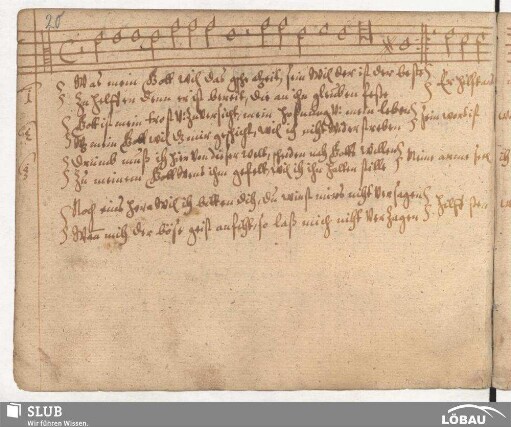 20
Was mein Gott wil das gscheh alzeit, sein wil der ist der beste Er hilfft aus
Zu helffen denen er ist bereit, die an ihn gleuben feste
1
Gott ist mein trost v: Zuversicht, mein hoffnung v: mein leben sein wort ist
2
Was mein Gott wil das mir geschicht, wil ich nicht widerstreben
3
Drumb mus ich hie von dieser welt, scheiden nach Gotts willen Meine arme seel
Zu meinem Gott wens ihm gefelt, wil ich ihm halten stille
Noch eins Herr wil ich bitten dich, du wirst mirs nicht versagen Hilff
Wan mich der böse geist anficht, so laß mich nicht verzagen
SLUB
Wir führen Wissen.
LÖBAU